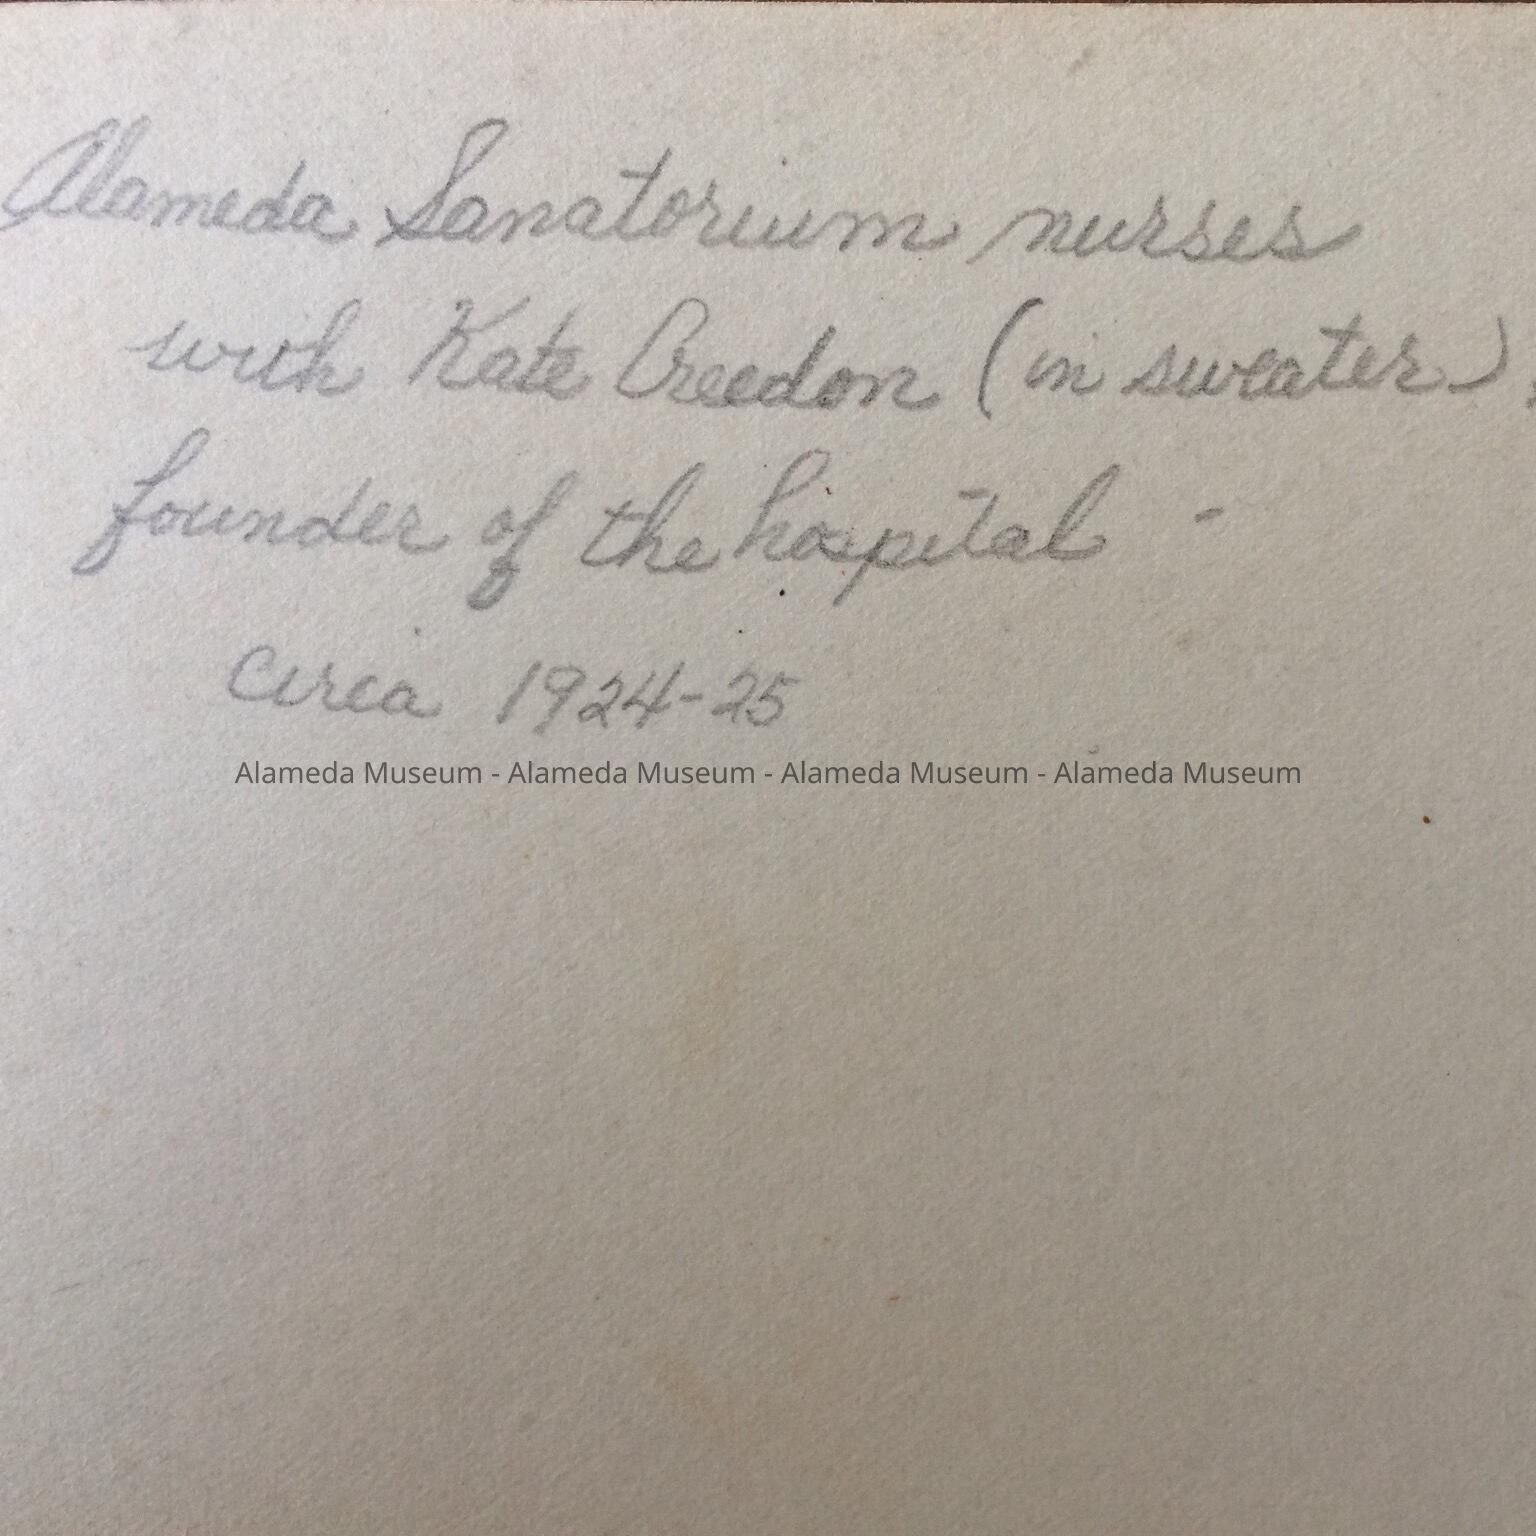 Alameda Sanatorium nurses
with Kate Creedon (in sweater),
founder of the hospital -
circa 1924-25
Alameda Museum - Alameda Museum - Alameda Museum - Alameda Museum